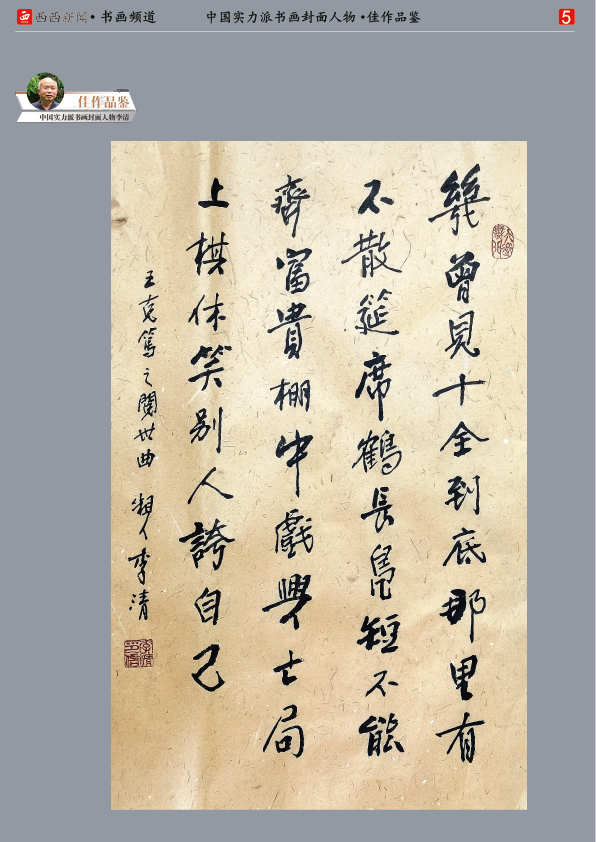 西西新闻·书画频道
中国实力派书画封面人物·佳作品鉴
5
佳作品鉴
中国实力派书画封面人物李清
幾曾見十全到底那里有
不散筵席鶴長鳧短不能
齊富貴棚中戲興亡局
上棋休笑别人誇自己
王克篤之閱世曲 湘人李清